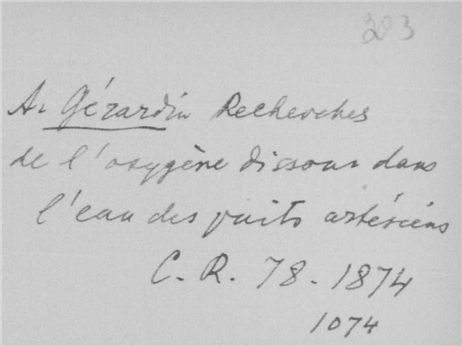 203
A. Gérardin Recherches
de l'oxygène dissous dans
l'eau des puits artésiens
C. R. 78. 1874
1074